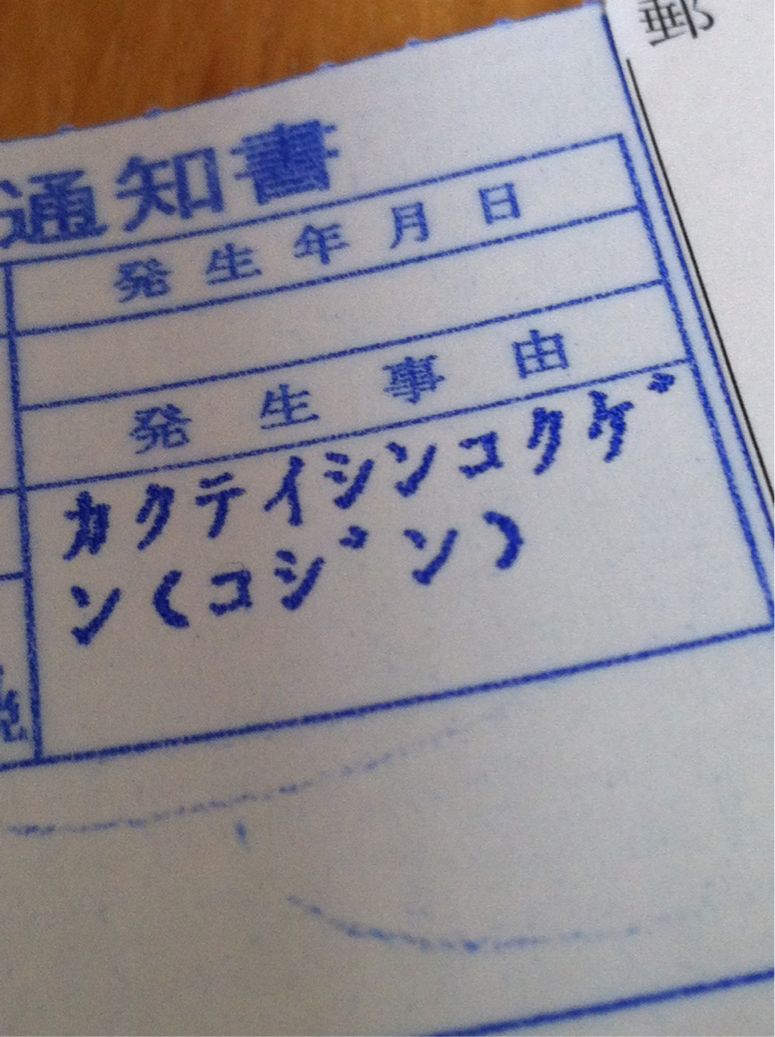 郵
通知書
発生年月日
発生事由
カクテイシンコクゲ
ン(コジン)